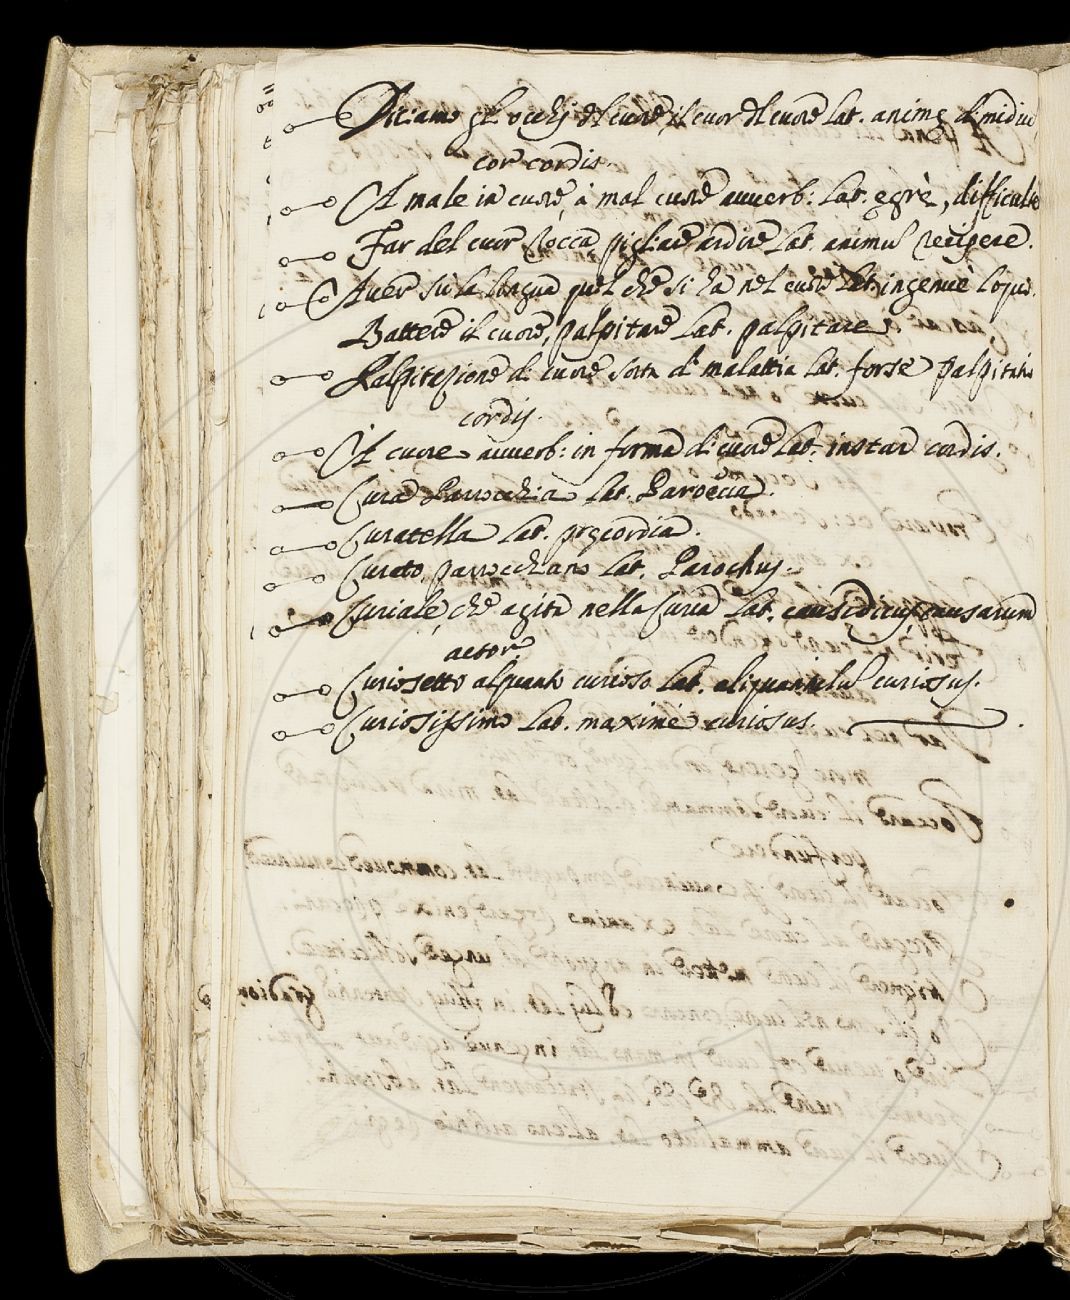 Diciamo gl'occhij del cuore il cuor del cuore Lat. anime dimidiu
cor cordis.
A male in cuore, à mal cuore avverb: Lat. ęgrè, difficulte
Far del cuor rocca pigliare ardire Lat. animũ erigere.
Aver sù la lingua quel che si ha nel cuore Lat. ingenuè loqui.
Battere il cuore, palpitare Lat. palpitare
Palpitazione di cuore sorta di malattia Lat. forse palpitatio
cordis.
A cuore avverb: in forma di cuore Lat. instar cordis.
Cura Parrocchia Lat. Paroecia.
Curatella Lat. pręcordia.
Curato, parrocchiano Lat. Parochus.
Curiale che agita nella Curia Lat. causidicus, causarum
actor.
Curiosetto alquanto curioso Lat. aliquantulũ curiosus.
Curiosissimo Lat. maximè curiosus.